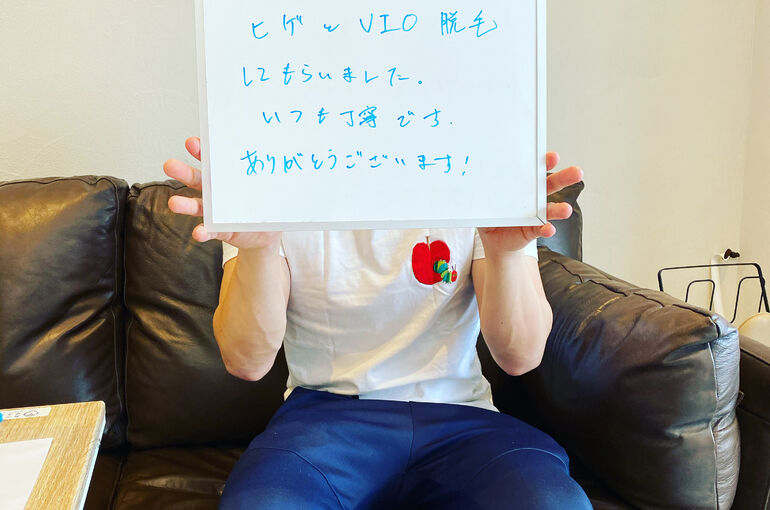 ヒゲとVIO脱毛
してもらいました。
いつも丁寧です.
ありがとうございます!